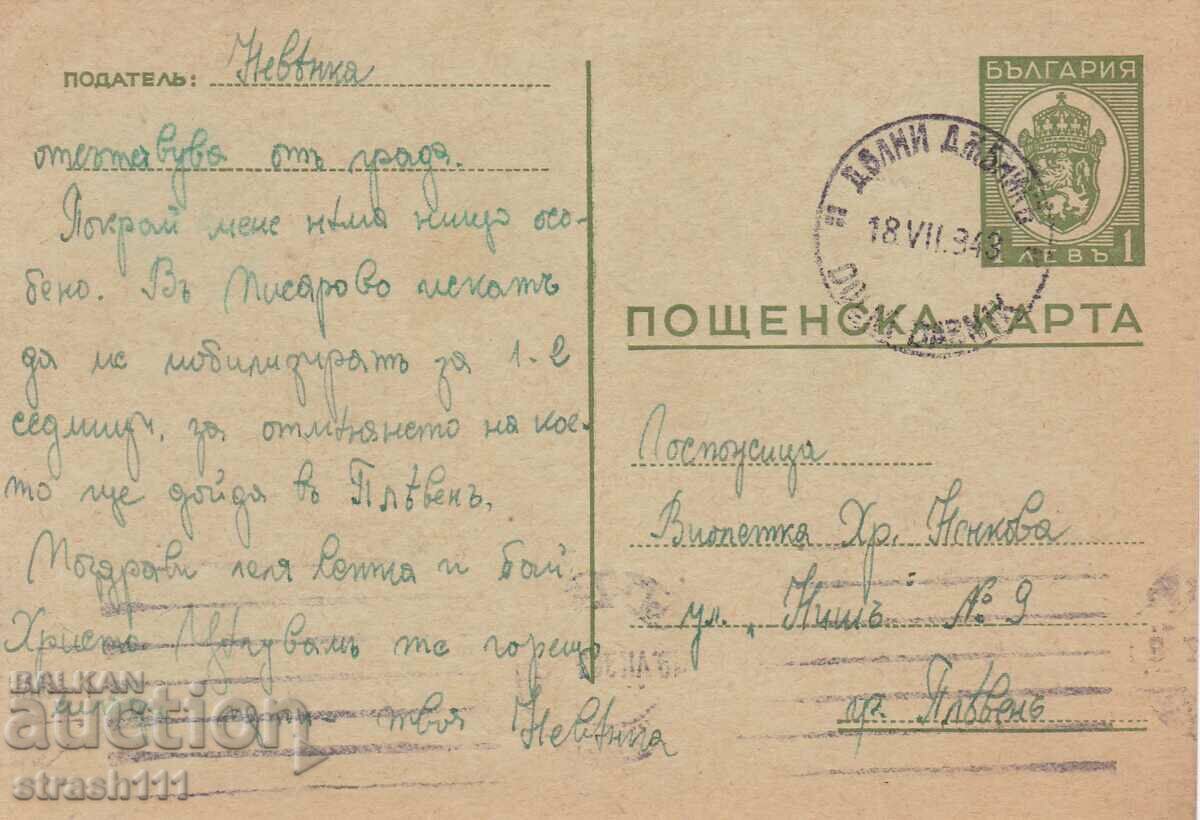 ПОДАТЕЛЬ: Невѣнка
отсѫтствува отъ града.
Покрай мене нѣма нищо осо-
бено. Въ Писарово искатъ
да ме мобилизиратъ за 1-2
седмици, за отмѣнянето на кое-
то ще дойда въ Плѣвенъ.
Поздрави леля Венка и бай
Христо Цѣлувамъ те горещо
твоя Невѣнка
БЪЛГАРИЯ
1 ЛЕВЪ 1
ДОЛНИ ДѪБНИКЪ
18.VII.943
DOLNI DABNIK
ПОЩЕНСКА КАРТА
Госпожица
Виолетка Хр. Нинкова
ул. „Нишъ" № 9
гр. Плѣвенъ
BALKAN
auction
strash111